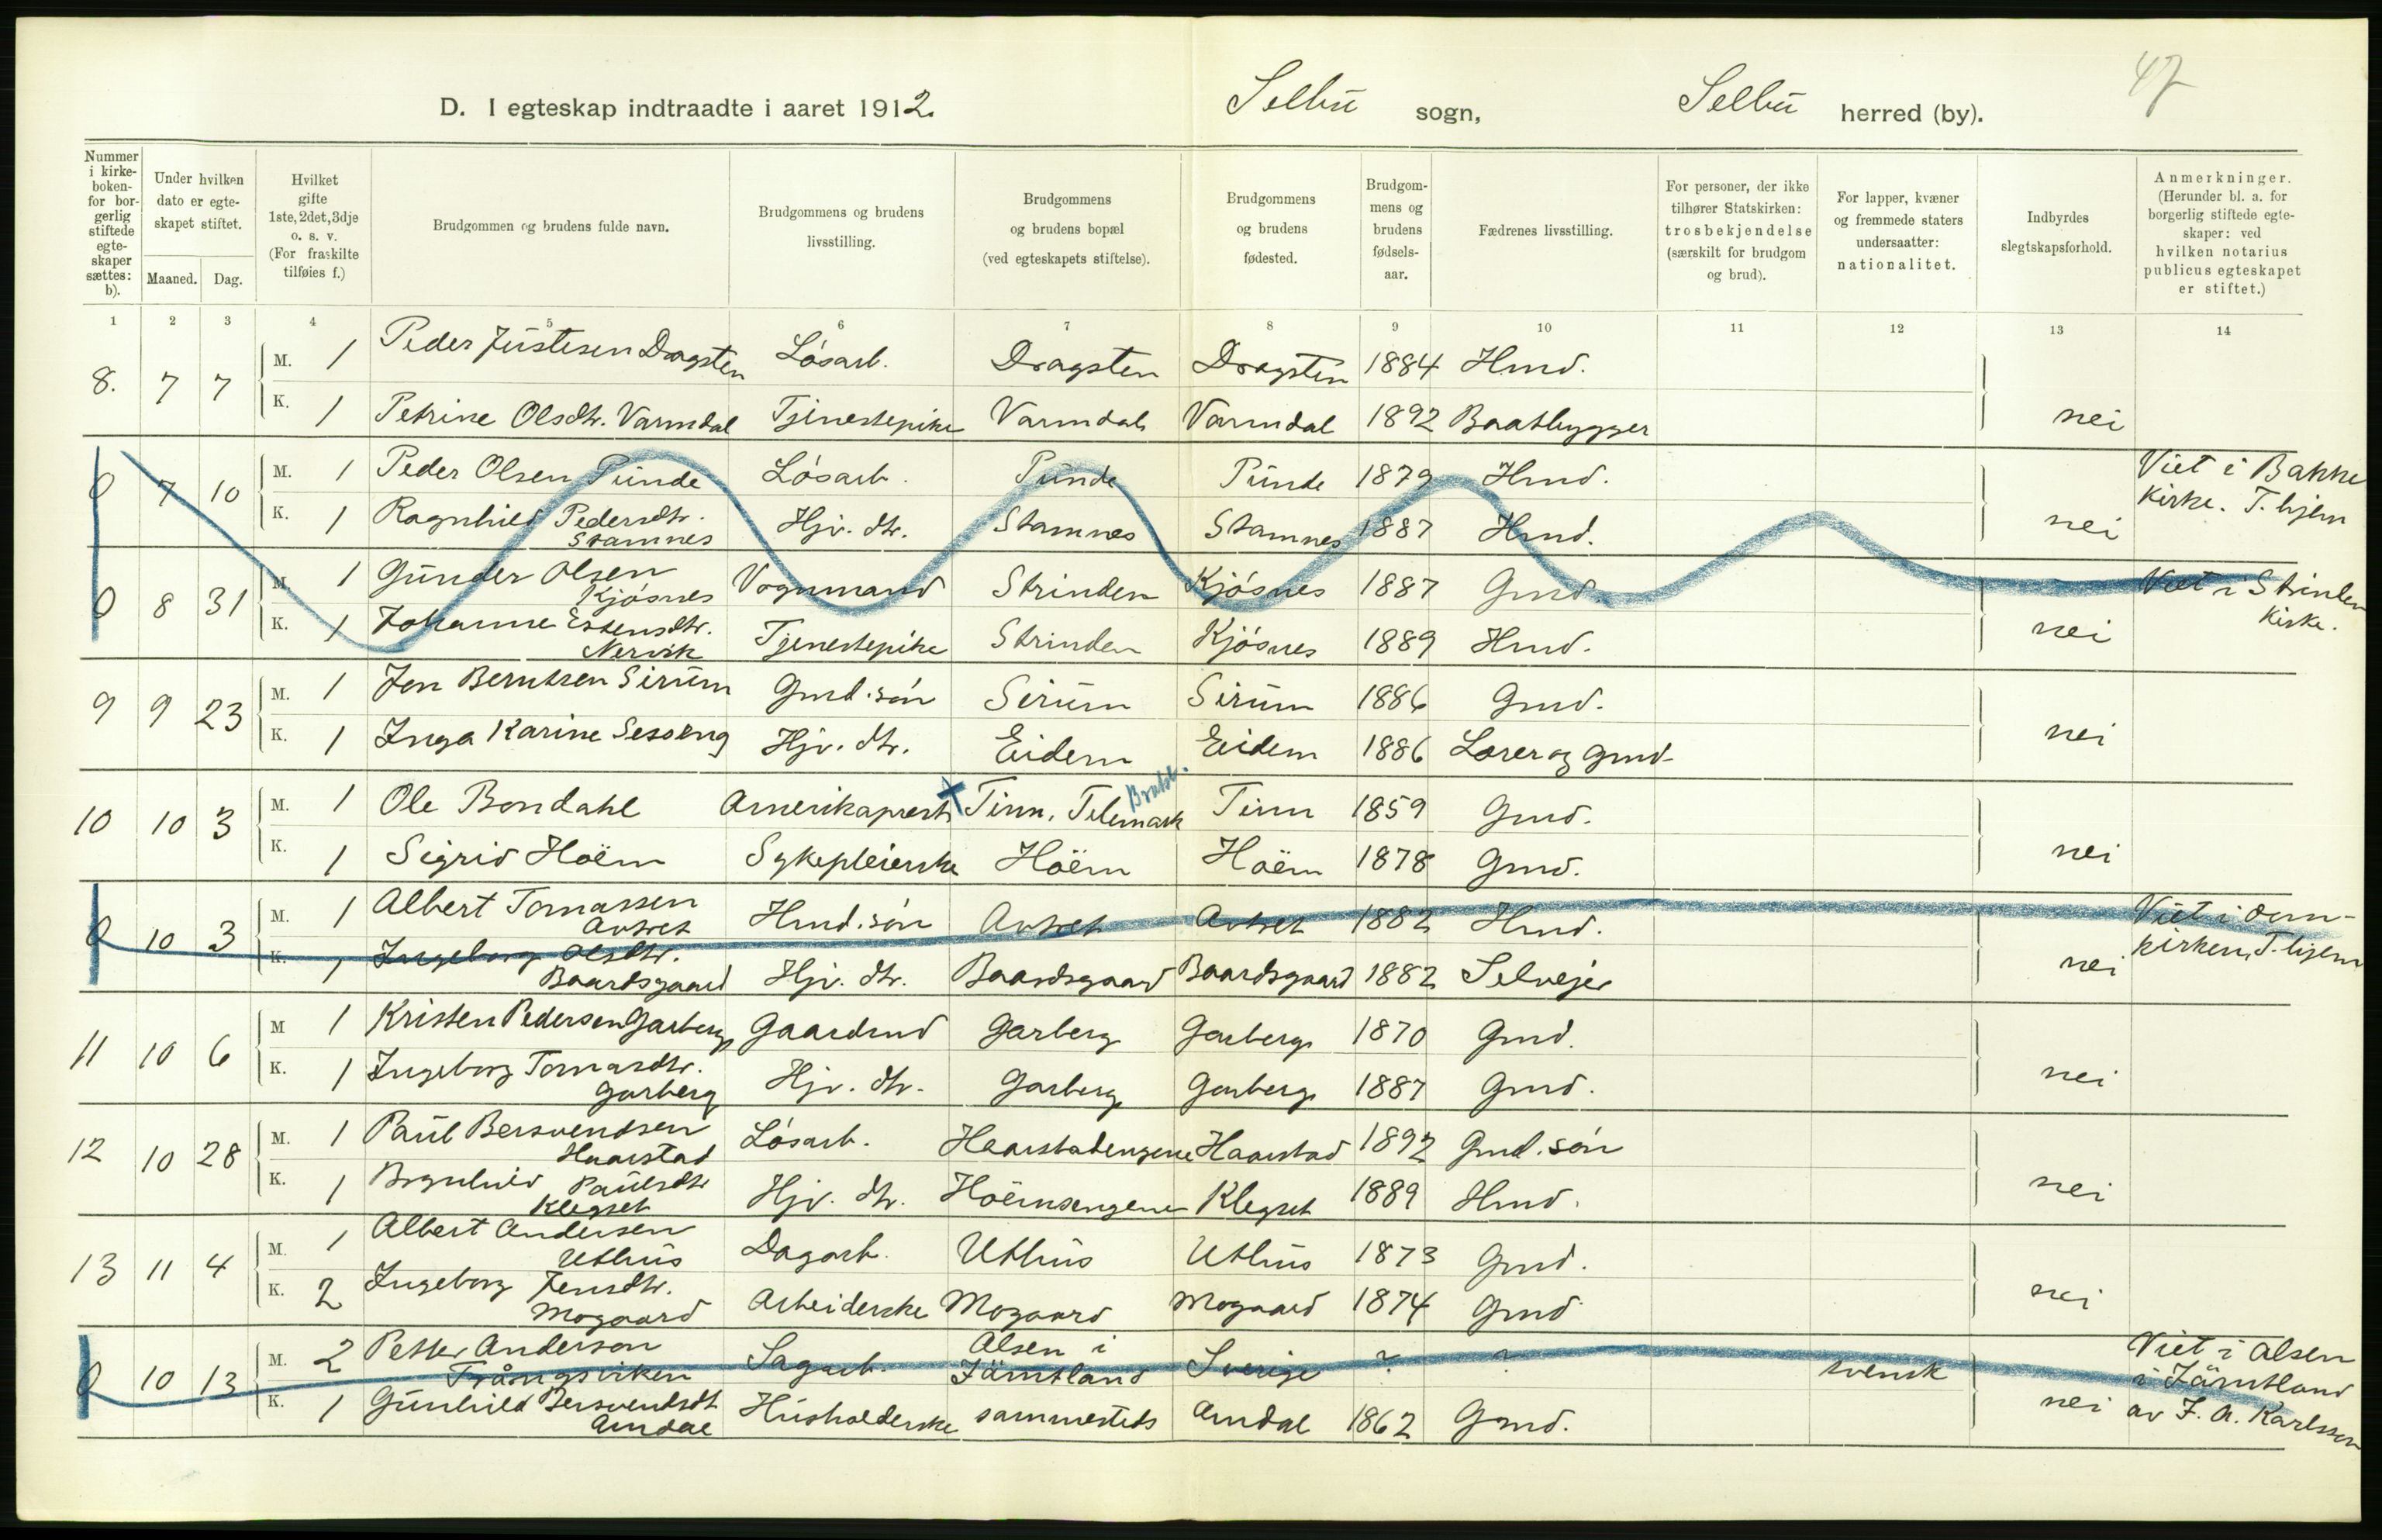 47
D. I egteskap indtraadte i aaret 1912. Selbu sogn, Selbu herred (by).
Nummer i kirkeboken- for borgerlig stiftede egteskaper sættes: b).
Under hvilken dato er egteskapet stiftet.
Maaned. Dag.
Hvilket gifte 1ste, 2det, 3dje o. s. v. (For fraskilte tilføies f.)
Brudgommen og brudens fulde navn.
Brudgommens og brudens livsstilling.
Brudgommens og brudens bopæl (ved egteskapets stiftelse).
Brudgommens og brudens fødested.
Brudgommens og brudens fødselsaar.
Fædrenes livsstilling.
For personer, der ikke tilhører Statskirken: trosbekjendelse (særskilt for brudgom og brud).
For lapper, kvæner og fremmede staters undersaatter: nationalitet.
Indbyrdes slegtskapsforhold.
Anmerkninger. (Herunder bl. a. for borgerlig stiftede egteskaper: ved hvilken notarius publicus egteskapet er stiftet.)
1 2 3 4 5 6 7 8 9 10 11 12 13 14
8. 7 7 M. 1 Peder Justesen Dragsten Lósarb. Dragsten Dragsten 1884 Hmd.
K. 1 Petrine Olsdtr. Varmdal Tjenestepike Varmdal Varmdal 1892 Baatbygger nei
0 7 10 M. 1 Peder Olsen Punde Lósarb. Punde Punde 1879 Hmd. Viet i Bakke
K. 1 Ragnhild Pedersdtr. Stamnes Hjv. dtr. Stamnes Stamnes 1887 Hmd. nei kirke. T.hjem
0 8 31 M. 1 Gunder Olsen Kjósnes Vognmand Strinden Kjósnes 1887 Gmd. Viet i Strinden
K. 1 Johanne Estensdtr. Nervik Tjenestepike Strinden Kjósnes 1889 Hmd. nei kirke.
9 9 23 M. 1 Jon Berntsen Sirum Gmd.són Sirum Sirum 1886 Gmd.
K. 1 Inga Karine Sesseng Hjv. dtr. Eidem Eidem 1886 Lærer og Gmd. nei
10 10 3 M. 1 Ole Bondahl Amerikaprest Tinn, Telemark Bratsb. Tinn 1859 Gmd.
K. 1 Sigrid Hoëm Sykepleierske Hoëm Hoëm 1878 Gmd. nei
0 10 3 M. 1 Albert Tomassen Avtret Hmd.són Avtret Avtret 1882 Hmd. Viet i dom-
K. 1 Ingeborg Olsdtr. Baardsgaard Hjv. dtr. Baardsgaard Baardsgaard 1882 Selvejer nei kirken, T.hjem
11 10 6 M 1 Kristen Pedersen Garberg Gaardmd Garberg Garberg 1870 Gmd.
K. 1 Ingeborg Tomasdtr. Garberg Hjv. dtr. Garberg Garberg 1887 Gmd. nei
12 10 28 M. 1 Paul Bersvendsen Haarstad Lósarb. Haarstadengene Haarstad 1892 Gmd.són
K. 1 Paulsdtr Klegset Hjv. dtr. Hoëmsengene Klegset 1889 Hmd. nei
13 11 4 M. 1 Albert Andersen Uthus Dagarb. Uthus Uthus 1873 Gmd.
K. 2 Ingeborg Jensdtr. Mogaard Arbeiderske Mogaard Mogaard 1874 Gmd nei
0 10 13 M. 2 Petter Anderson Trångsviken Sagarb. Alsen i Jämtland Sverige ? ? svensk Viet i Alsen i Jämtland
K. 1 Gunhild Bersvendsdt Amdal Husholderske sammesteds Amdal 1862 Gmd. nei av J. A. Karlsson